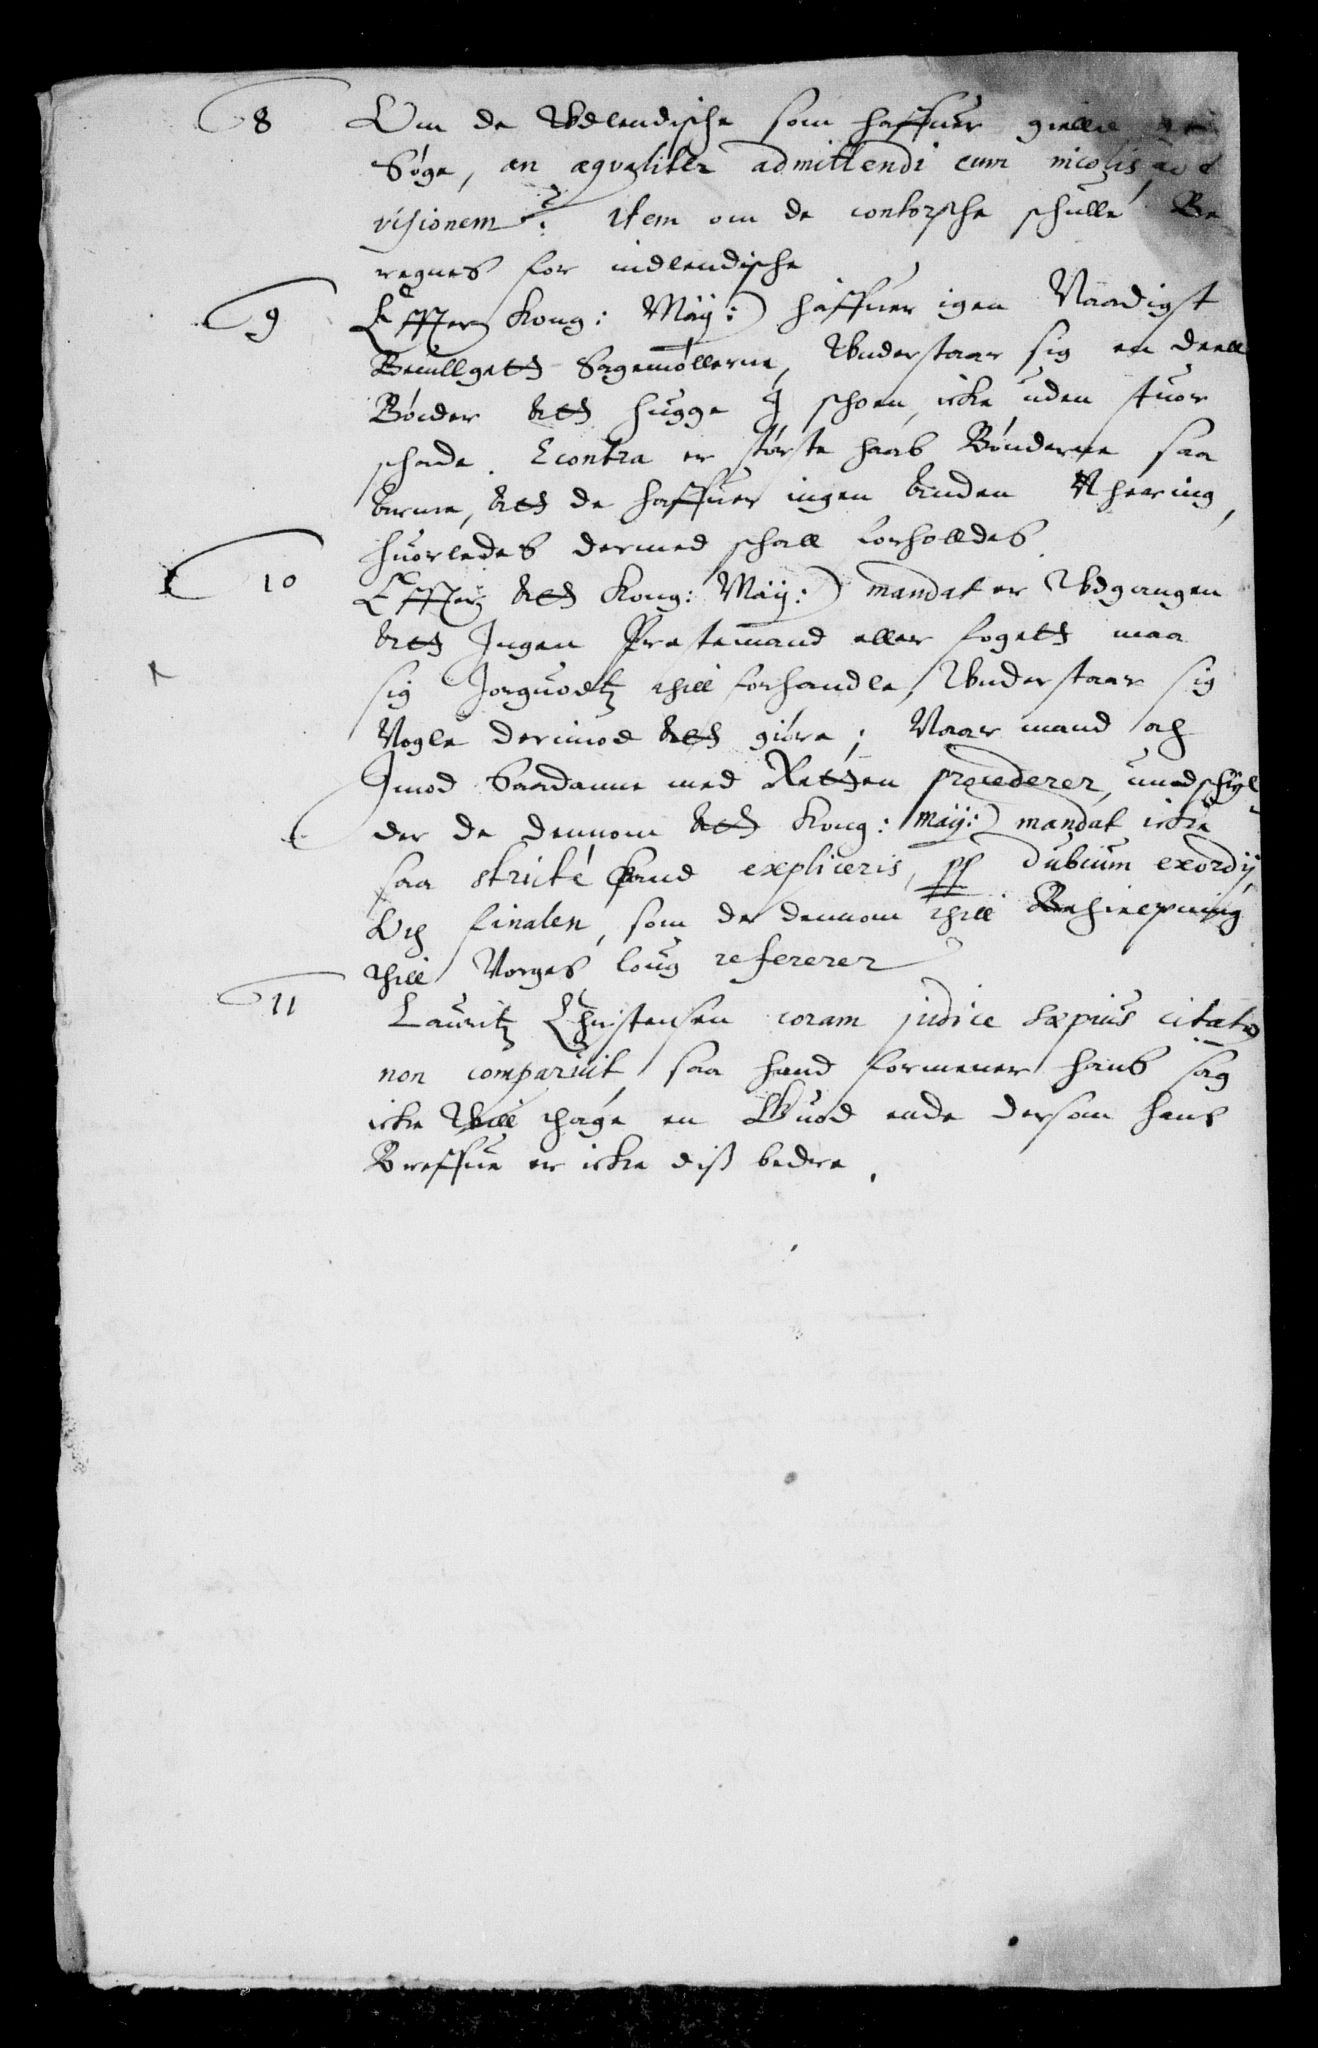 8 Om de Wdlendische som haffuer gielld
Søge, an æqvaliter admittendi cum incolis ad
visionem? item om de contorsche schulle Be
regnes for indlendische
9 Effter Kong: Maÿ: haffuer igen Naadigst
Beuillgett Sagemøllerne, Wnderstaar sig en deell
Bønder att hugge I schoen, icke uden stuor
schade. Econtra er største haab Bønderne saa
arme, att de haffuer ingen anden Nhering,
huorledes dermed schall forholldes.
10 Effter att Kong: Maÿ: mandat er Wdgangen
att Ingen Prestemand eller fogett maa
sig Jorguodtz thill forhandle, Wnderstaar sig
Nogle derimod att giøre; Naar mand och
Imod Saadanne med Retten procederer, undschÿl
der de dennom att Kong: Maÿ: mandat icke
saa stricté kand expliceris, pp dubium exordij,
Och finalen, som de dennom thill Behielpning
thill Norges loug refererer
11 Lauritz Christensen coram judice sæpius citatus
non comparuit, saa hand formener hans sag
icke Will thage en Guod ende dersom hans
Breffue er icke diss bedre.